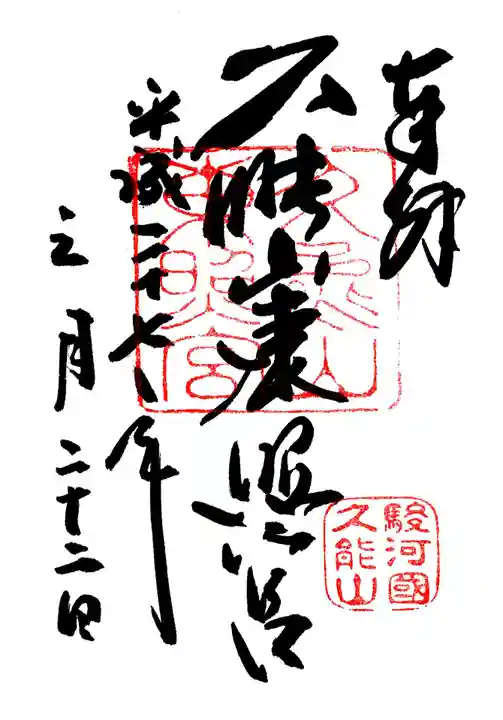 奉拝
久能山東照宮
平成二十七年
三月二十二日
久能山東照宮
駿河國
久能山